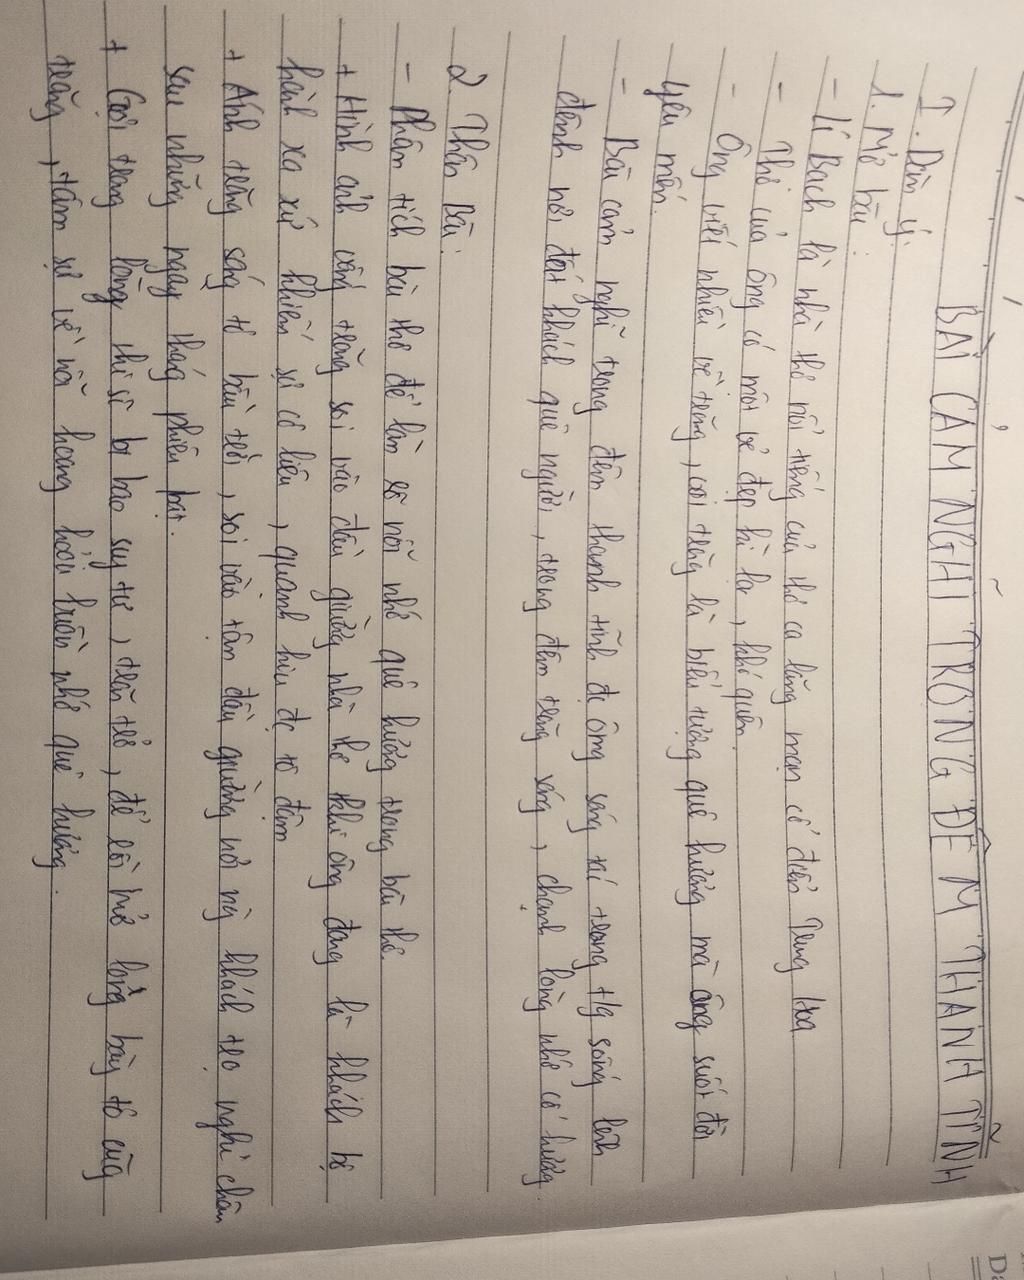 BÀI CẢM NGHĨ TRONG ĐÊM THANH TĨNH
I. Dàn ý:
1. Mở bài:
- Lí Bạch là nhà thơ nổi tiếng của thơ ca lãng mạn cổ điển Trung Hoa
- Thơ của ông có một vẻ đẹp kì lạ, khó quên.
- Ông viết nhiều về trăng, coi trăng là biểu tượng quê hương mà ông suốt đời
yêu mến.
- Bài cảm nghĩ trong đêm thanh tĩnh đc ông sáng tác trong t/g sống lênh
đênh nơi đất khách quê người, trong đêm trăng sáng, chạnh lòng nhớ cố hương.
2. Thân bài:
- Phân tích bài thơ để làm rõ nỗi nhớ quê hương trong bài thơ.
+ Hình ảnh vầng trăng soi vào đầu giường nhà thơ khi ông đang là khách bộ
hành xa xứ khiến sự cô liêu, quạnh hiu đc tô đậm
+ Ánh trăng sáng tỏ bầu trời, soi vào tận đầu giường nơi ng khách trọ nghỉ chân
sau những ngày tháng phiêu bạt.
+ Gợi trong lòng thi sĩ bao suy tư, trăn trở, để rồi mở lòng bày tỏ cùng
trăng, tâm sự về nỗi hoang hoải buồn nhớ quê hương.